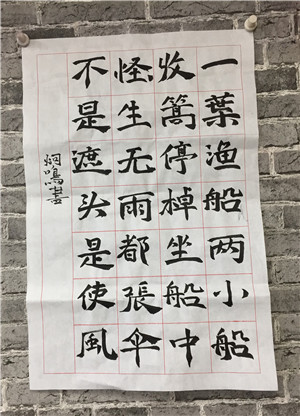 一葉渔船两小船
收篙停棹坐船中
怪生无雨都張伞
不是遮头是使風
炯鳴書